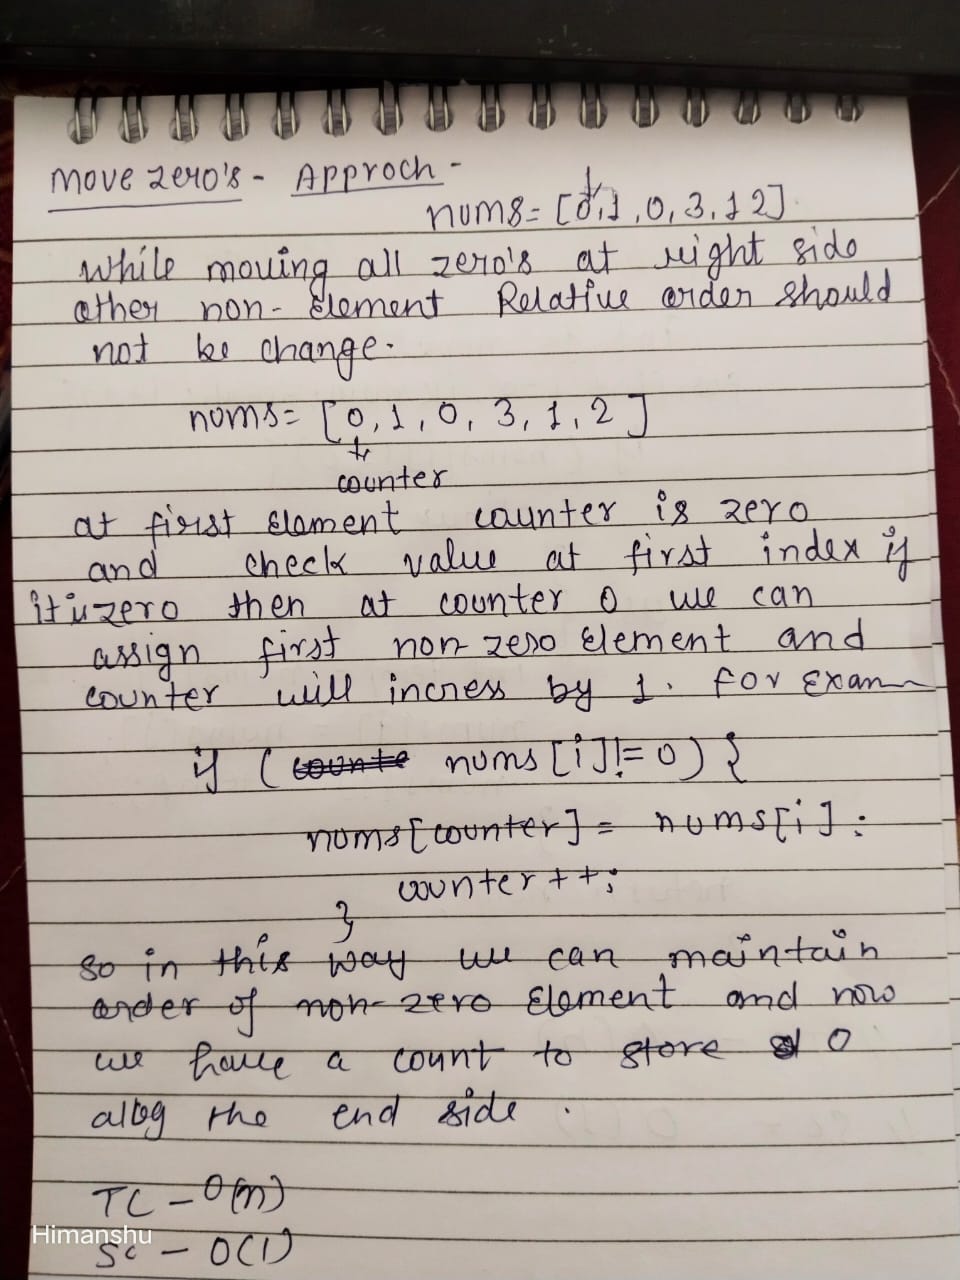 Move zero's - Approch -
nums = [0,1,0,3,12]
while moving all zero's at right side
other non-Element Relative order should
not be change.
nums = [0,1,0,3,1,2]
counter
at first element counter is zero
and check value at first index if
it is zero then at counter 0 we can
assign first non-zero Element and
counter will incress by 1. for Exam
if ( nums[i]!=0) {
nums[counter] = nums[i];
counter++;
}
so in this way we can maintain
order of non-zero Element and now
we have a count to store 0
the end side.
TC - O(n)
SC - O(1)
Himanshu